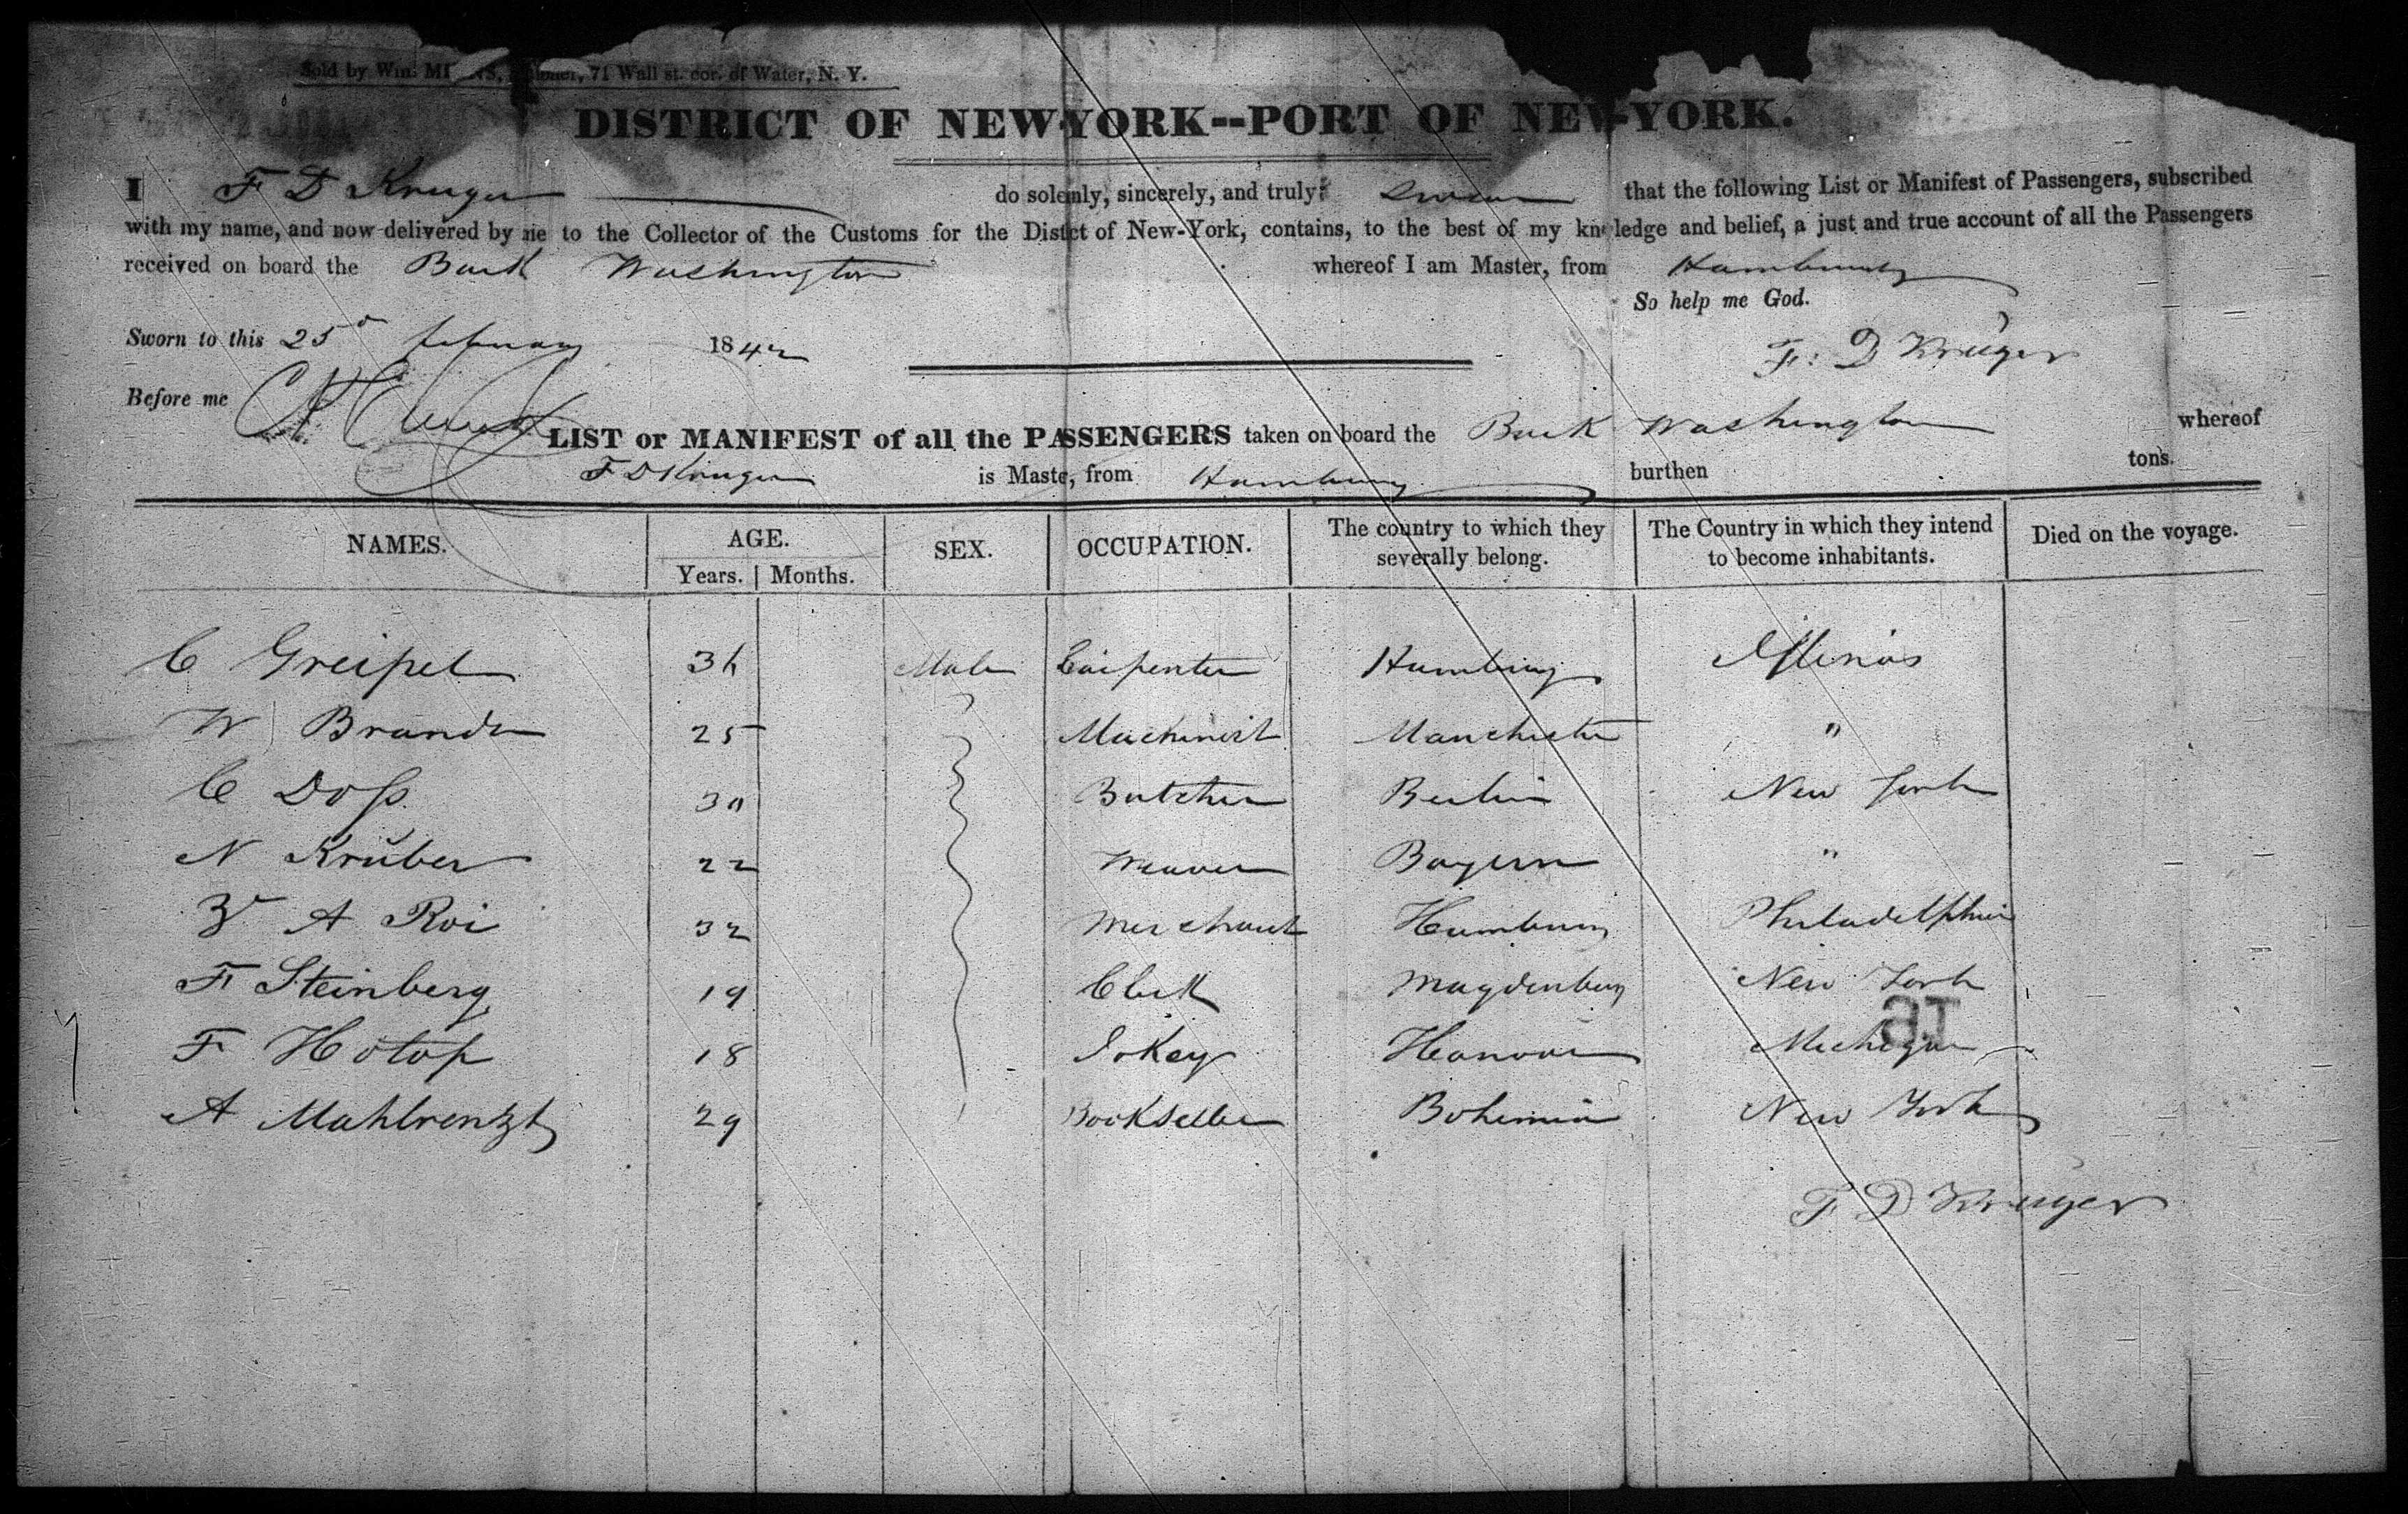 Sold by Wm. MI NS, 71 Wall st. cor. of Water, N. Y.
DISTRICT OF NEW-YORK--PORT OF NEW-YORK.
I F D Kruger do solemnly, sincerely, and truly swear that the following List or Manifest of Passengers, subscribed
with my name, and now delivered by me to the Collector of the Customs for the District of New-York, contains, to the best of my knowledge and belief, a just and true account of all the Passengers
received on board the Bark Washington whereof I am Master, from Hamburg
So help me God.
Sworn to this 25 February 1842
F: D Krüger
Before me
LIST or MANIFEST of all the PASSENGERS taken on board the Bark Washington whereof
F D Kruger is Master, from Hamburg burthen tons.
NAMES. AGE. Years. Months. SEX. OCCUPATION. The country to which they severally belong. The Country in which they intend to become inhabitants. Died on the voyage.
C Greipel 36 Male Carpenter Hamburg Illinois
W Brandt 25 Machinist Manchester "
C Doß 30 Butcher Berlin New York
N Krŭber 22 Weaver Bayern "
A Roi 32 Merchant Hamburg Philadelphia
F Steinberg 19 Clerk Magdenburg New York
F Hotop 18 Jokey Hanover Michigan
A Mahlrentzt 29 Bookseller Bohemia New York
F D Krüger